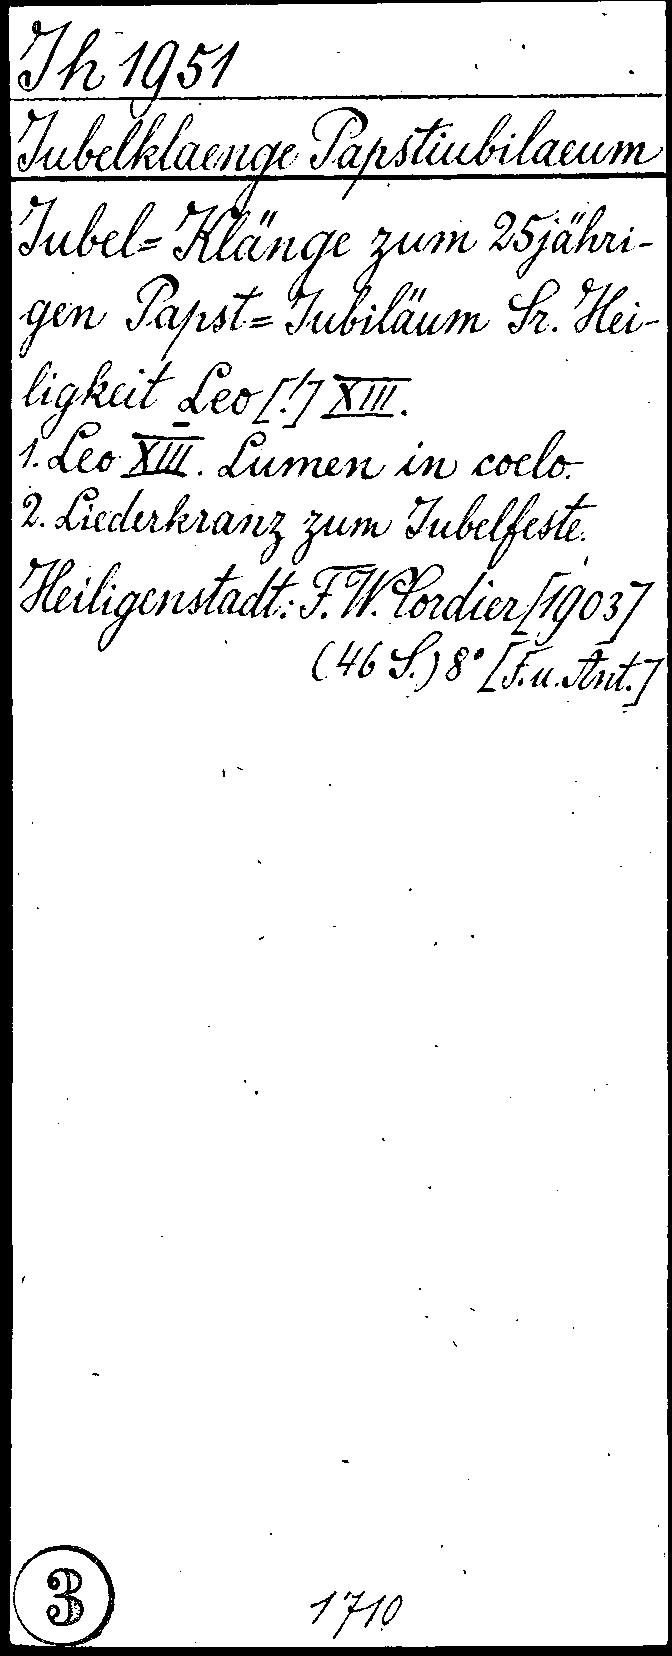 Jh 1951
Jubelklaenge Papstiubilaeum
Jubel=Klänge zum 25jähri-
gen Papst=Jubiläum Sr. Hei-
ligkeit Leo [!] XIII.
1. Leo XIII. Lumen in coelo.
2. Liederkranz zum Jubelfeste.
Heiligenstadt: F. W. Cordier [1903]
(46 S.) 8° [F. u. Ant.]
3
1710